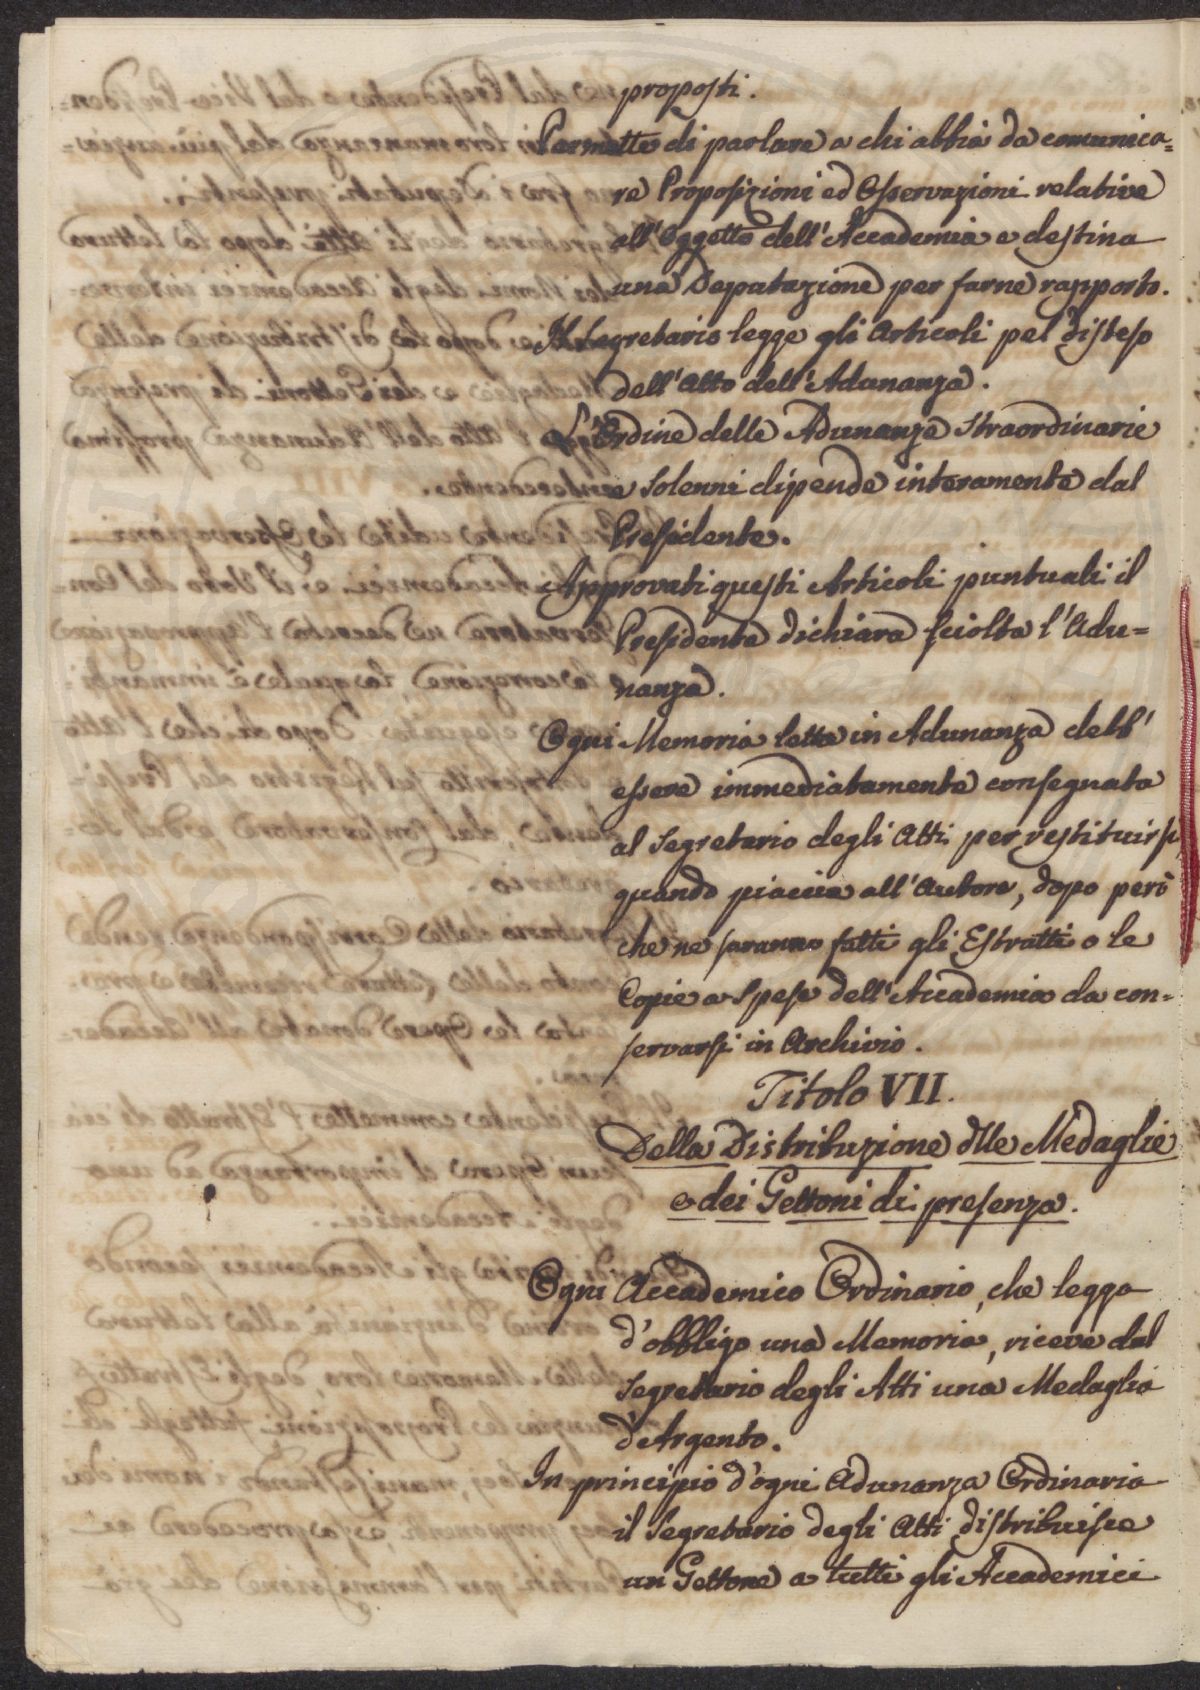 proposti.
Permette di parlare a chi abbia da comunica=
re Proposizioni ed Osservazioni relative
all'Oggetto dell'Accademia e destina
una Deputazione per farne rapporto.
Il Segretario legge gli Articoli pel disteso
dell'Atto dell'Adunanza.
L'Ordine delle Adunanze Straordinarie
e Solenni dipende interamente dal
Presidente.
Approvati questi Articoli puntuali il
Presidente dichiara sciolta l'Adu=
nanza.
Ogni Memoria letta in Adunanza debb'
essere immediatamente consegnata
al Segretario degli Atti per restituirsi,
quando piaccia all'Autore, dopo però
che ne saranno fatti gli Estratti o le
Copie a Spese dell'Accademia da con=
servarsi in Archivio.
Titolo VII.
Della Distribuzione dlle Medaglie
e dei Gettoni di presenza.
Ogni Accademico Ordinario, che legga
d'obbligo una Memoria, riceve dal
Segretario degli Atti una Medaglia
d'Argento.
In principio d'ogni Adunanza Ordinaria
il Segretario degli Atti distribuisce
un Gettone a tutti gli Accademici